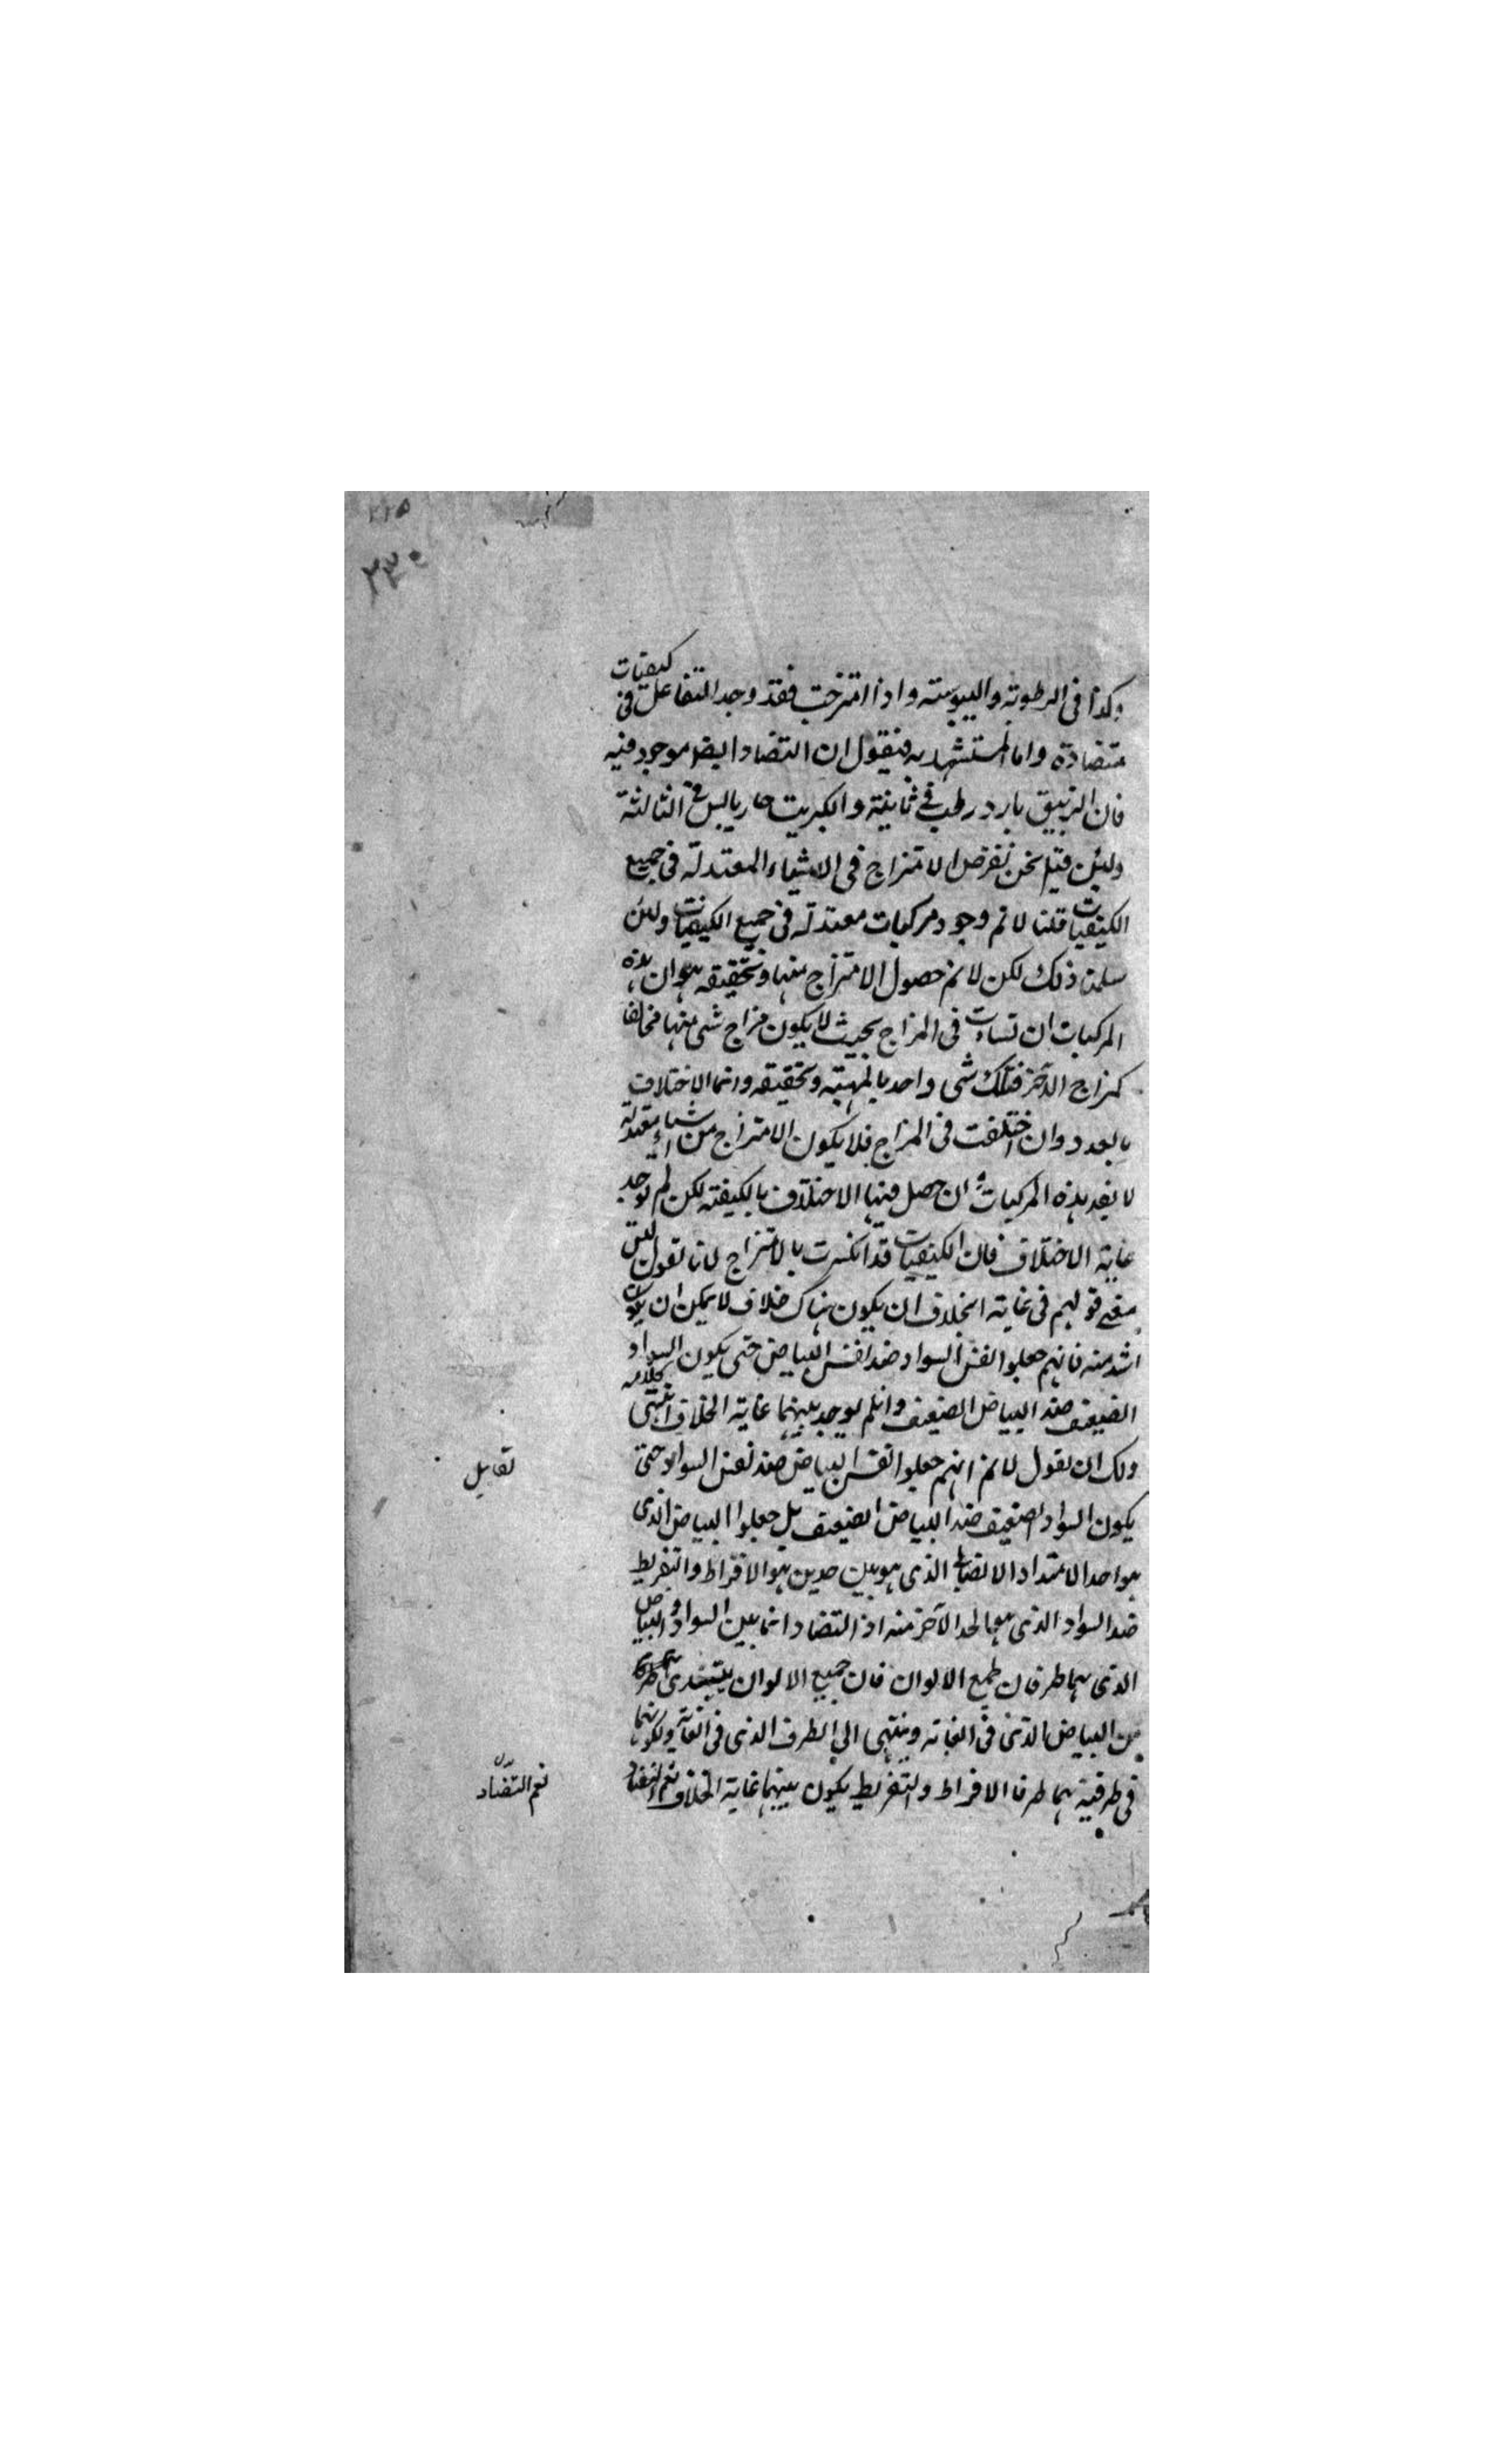 ٢١٥
٢٣٠
وكذا فى الرطوبة واليبوسته واذا امتزجت فقد وجد التفاعل فى كيفيات
متضادة واما المستشهد به فنقول ان التضاد ايضا موجود فيه
فان الزيبق بارد رطب فى ثانية والكبريت حار يابس فى الثالثة
ولئن قيل نحن نفرض الامتزاج فى الاشياء المعتدلة فى جميع
الكيفيات قلنا لا نم وجود مركبات معتدلة فى جميع الكيفيات ولئن
سلمنا ذلك لكن لا نم حصول الامتزاج منها وتحقيقه هو ان هذه
المركبات ان تساوت فى المزاج بحيث لا يكون مزاج شى منها مخالفا
كمزاج الآخر فتلك شى واحد بالمهية وتحقيقه وانما الاختلاف
بالعدد وان اختلفت فى المزاج فلا يكون الامتزاج من اشياء معتدلة
لا يقه هذه المركبات وان حصل فيها الاختلاف بالكيفية لكن لم توجد
غاية الاختلاف فان الكيفيات قد انكسرت بالامتزاج لانا نقول ليس
معنى قولهم فى غاية الخلاف ان يكون هناك خلاف لا يمكن ان يكون
اشد منه فانهم جعلوا نفس السواد ضد نفس البياض حتى يكون السواد
الضعيف ضد البياض الضعيف وان لم يوجد بينهما غاية الخلاف انتهى كلامه
ولك ان تقول لا نم انهم جعلوا نفس البياض ضد نفس السواد حتى
يكون السواد الضعيف ضد البياض الضعيف بل جعلوا البياض الذى
هو احد الامتداد الذى هو بين حدين هو الافراط والتفريط
ضد السواد الذى هو الحد الآخر منه اذ التضاد انما بين السواد والبياض
الذى هما طرفان لجميع الالوان فان جميع الالوان يبتدى
من البياض الذى فى الغاية وينتهى الى الطرف الذى فى الغاية ولكونهما
فى طرفية هما طرفا الافراط والتفريط يكون بينهما غاية الخلاف نعم التضاد
تقابل
نعم التضاد